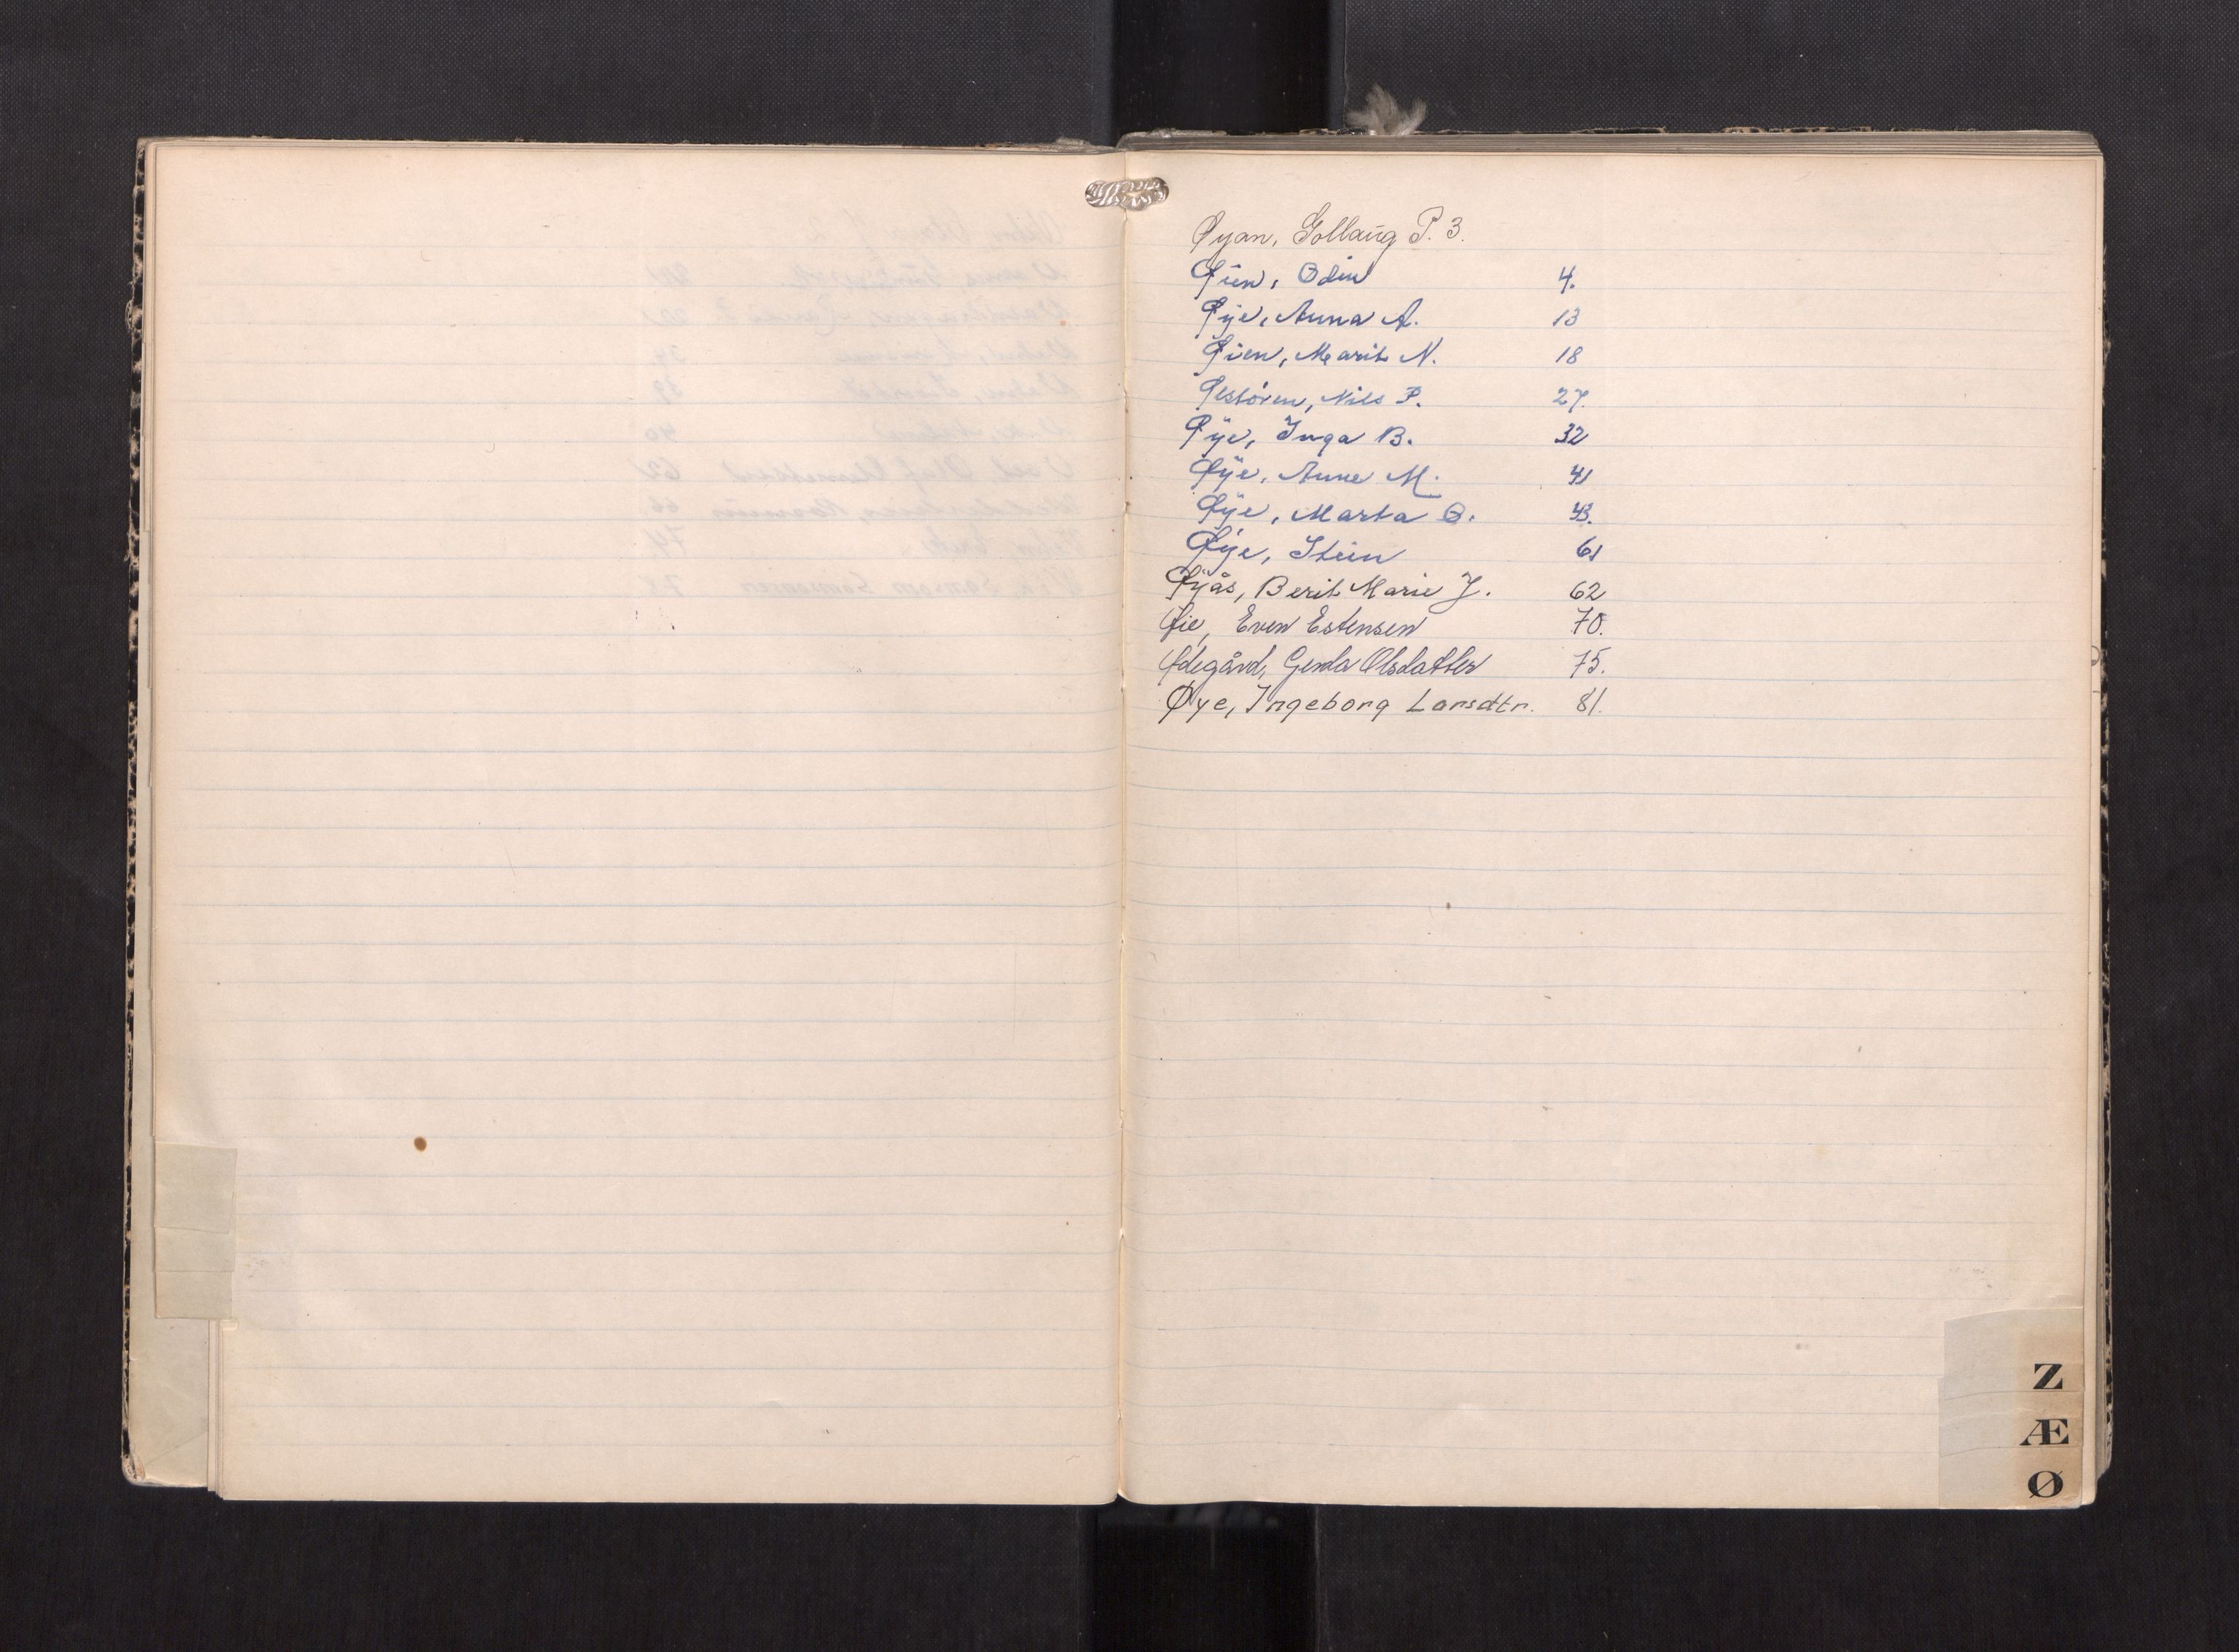 Øyan, Gollaug P. 3.
Øien, Odin 4.
Øye, Anna A. 13
Øien, Marit N. 18
Østeren, Nils P. 27.
Øye, Inga B. 32
Øye, Anne M. 41
Øye, Marta O. 43.
Øye, Stein 61
Øyås, Berit Marie J. 62
Øie, Even Estensen 70.
Ødegård, Gerda Olsdatter 75.
Øye, Ingeborg Larsdtr. 81.
Z
Æ
Ø